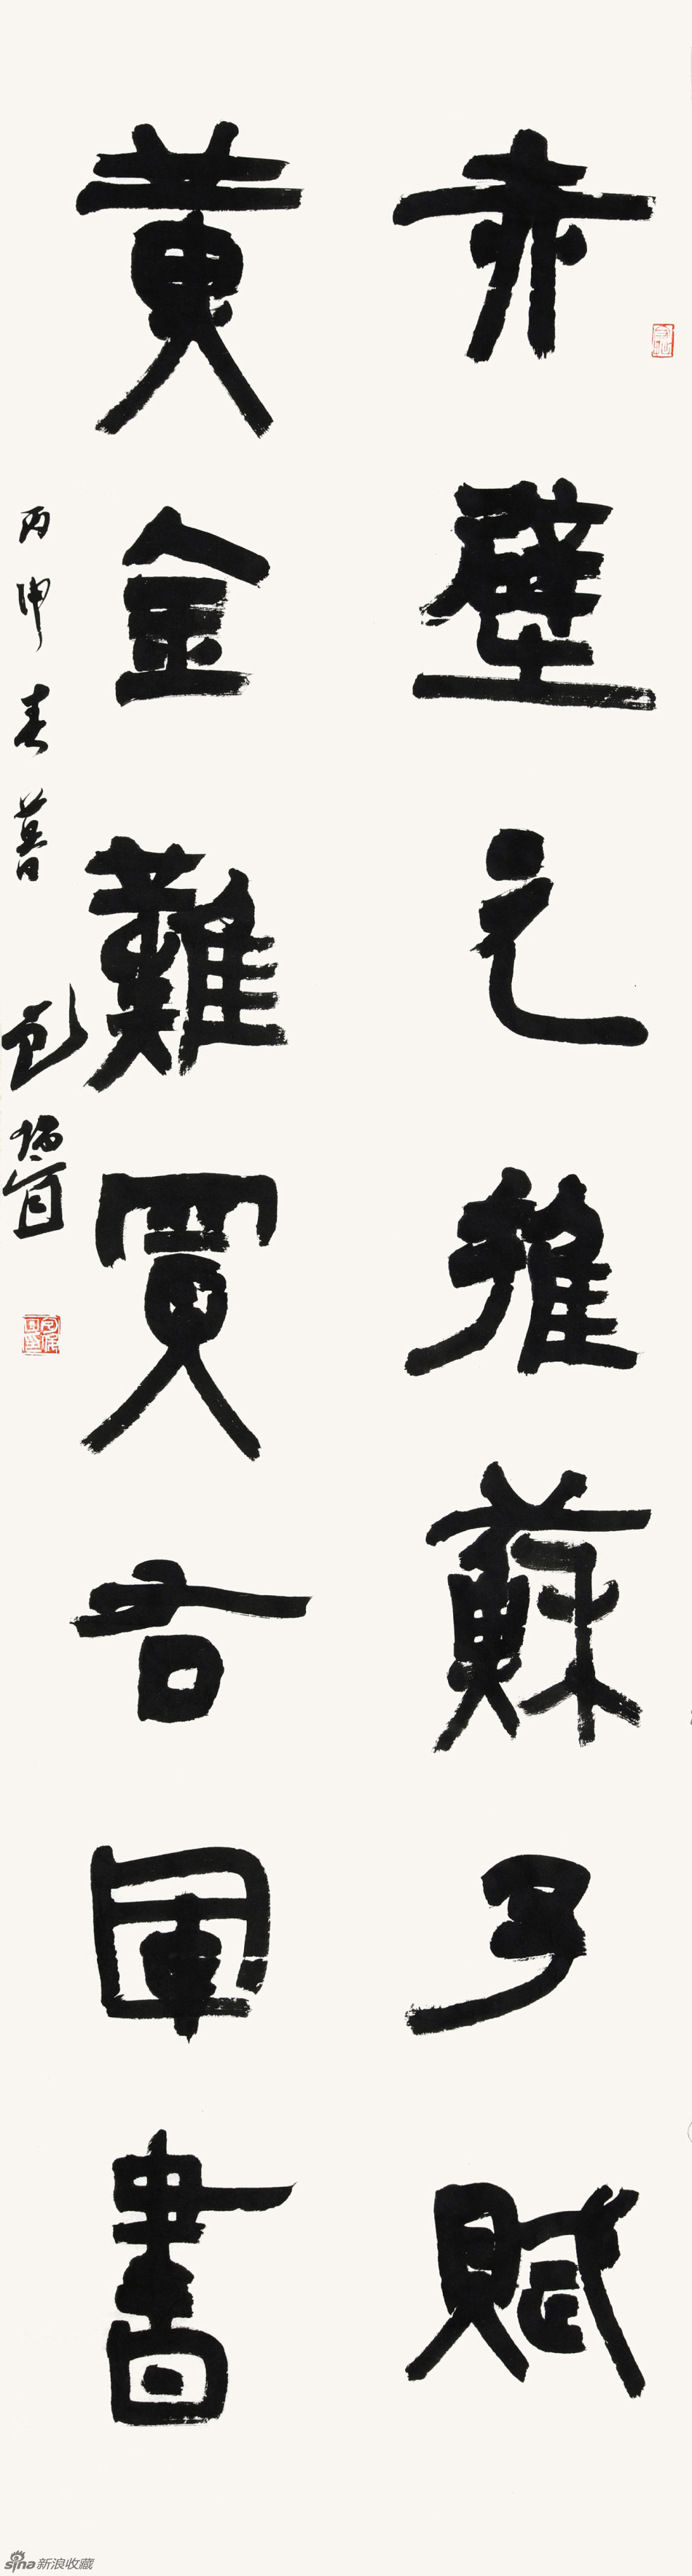 赤壁之雄蘇子賦
黃金難買右軍書
丙申春暮
sina新浪收藏